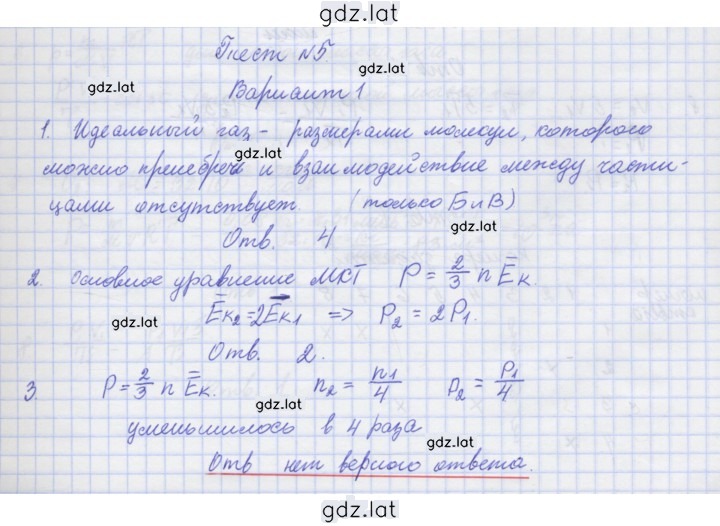 gdz.lat
Тест №5
gdz.lat
gdz.lat
Вариант 1
1. Идеальный газ - размерами молекул, которого
gdz.lat
можно пренебреч и взаимодействие между части-
цами отсутствует. (только Б и В)
gdz.lat
Отв. 4
2. Основное уравнение МКТ P = 2/3 n Ēк.
gdz.lat
Ēк₂ = 2Ēк₁ => P₂ = 2P₁.
Отв. 2.
3 P = 2/3 n Ēк. n₂ = n₁/4 P₂ = P₁/4
gdz.lat
уменьшилось в 4 раза
gdz.lat
Отв нет верного ответа.
gdz.lat